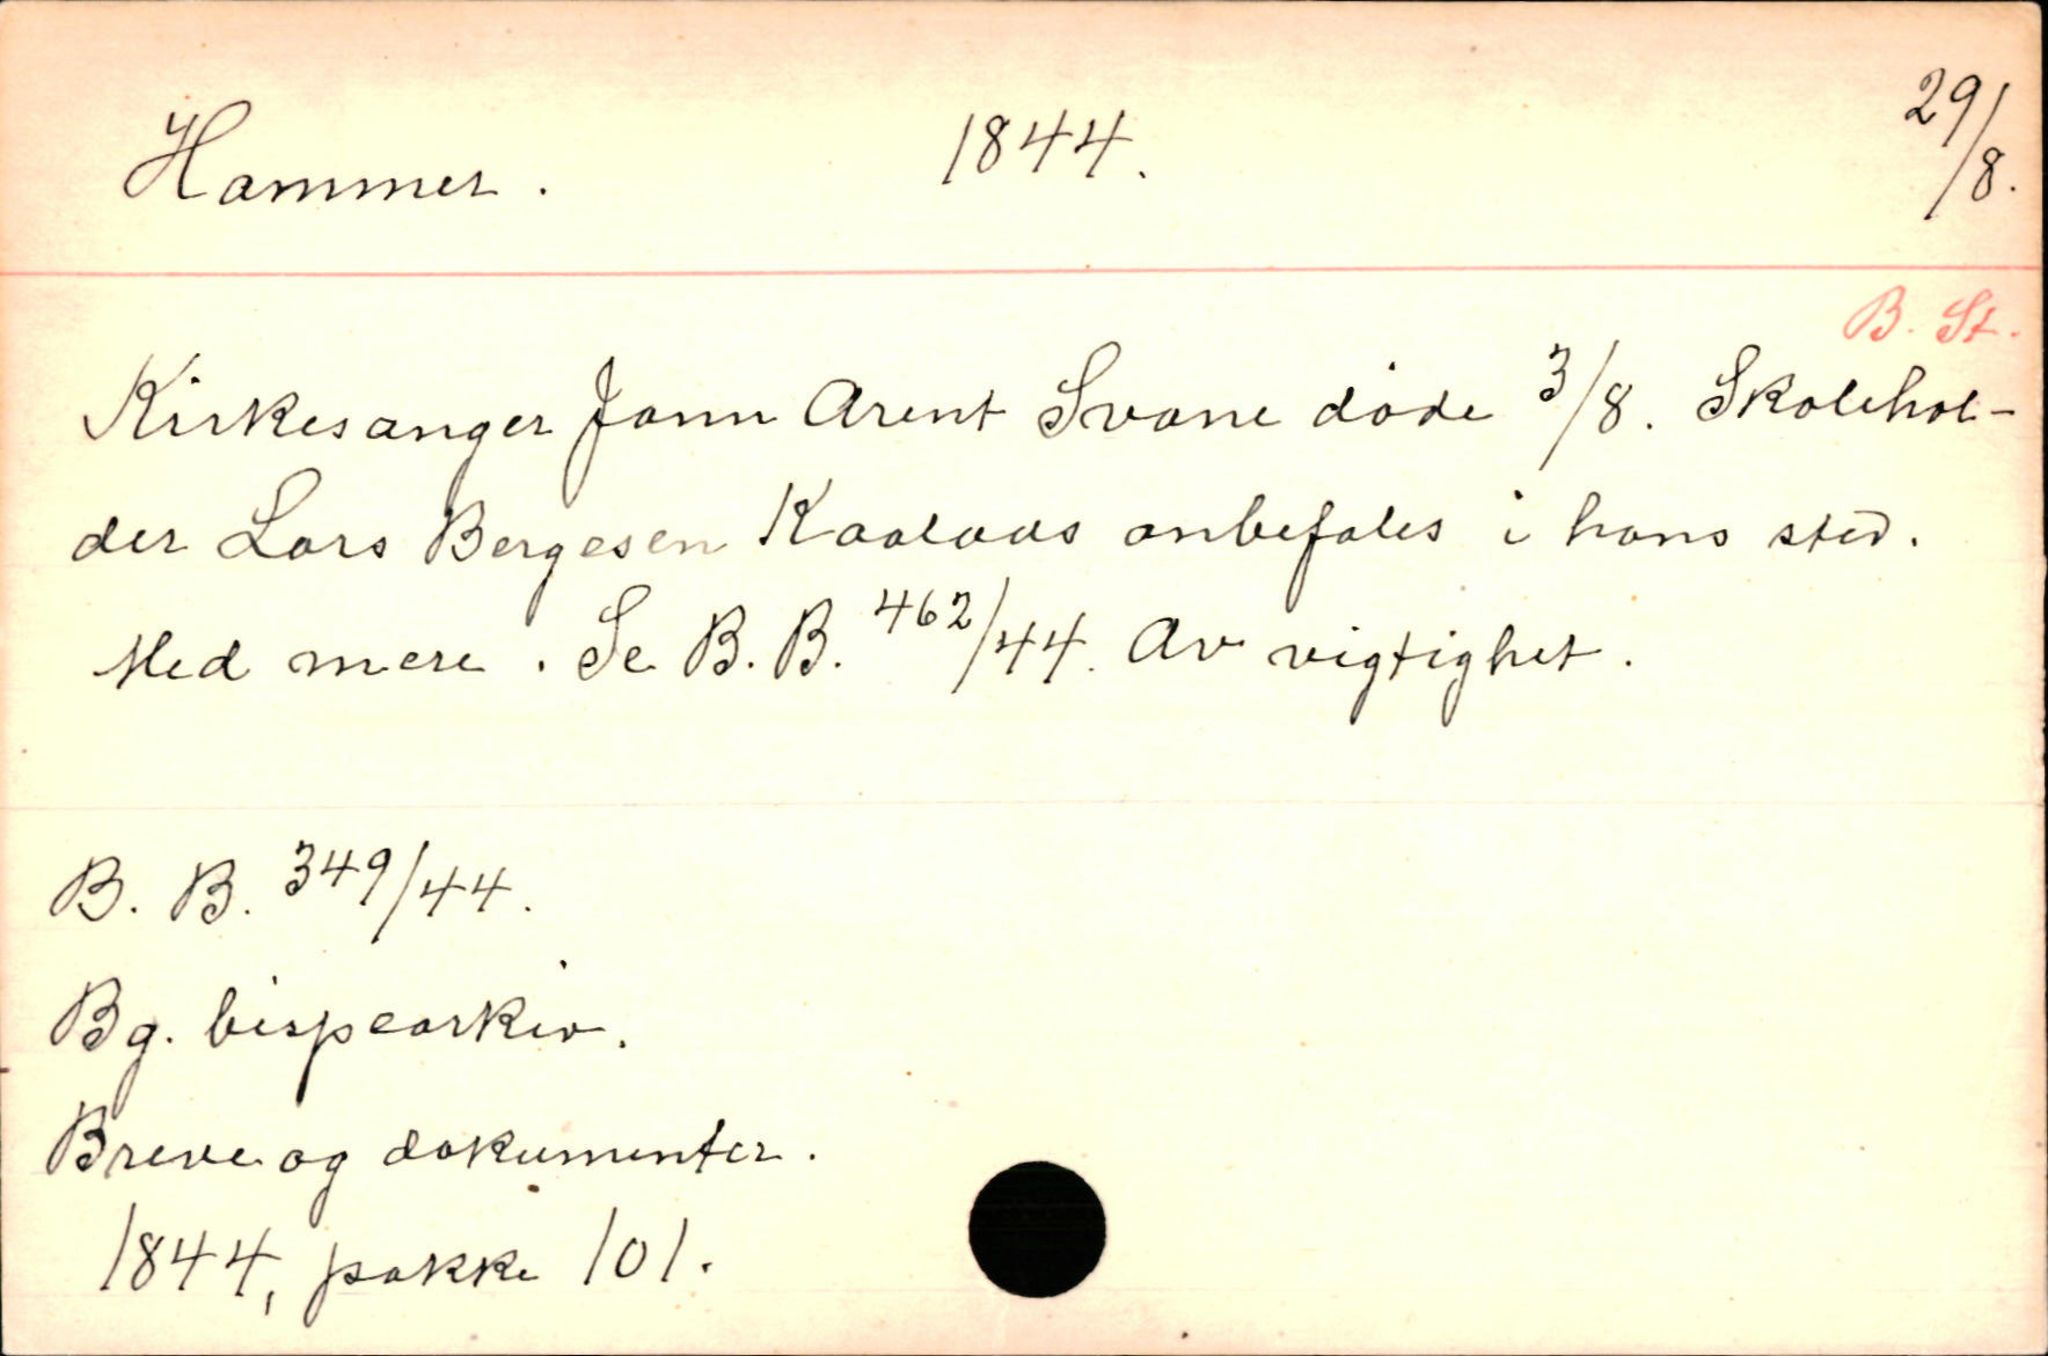 Hammer. 1844. 29/8.
B. St.
Kirkesanger Jann Arent Svane døde 3/8. Skolehol-
der Lars Børgesen Kaalaas anbefales i hans sted.
Med mere. Se B. B. 462/44. Av vigtighet.
B. B. 349/44.
Bg. bispearkiv.
Breve og dokumenter.
1844, pakke 101.